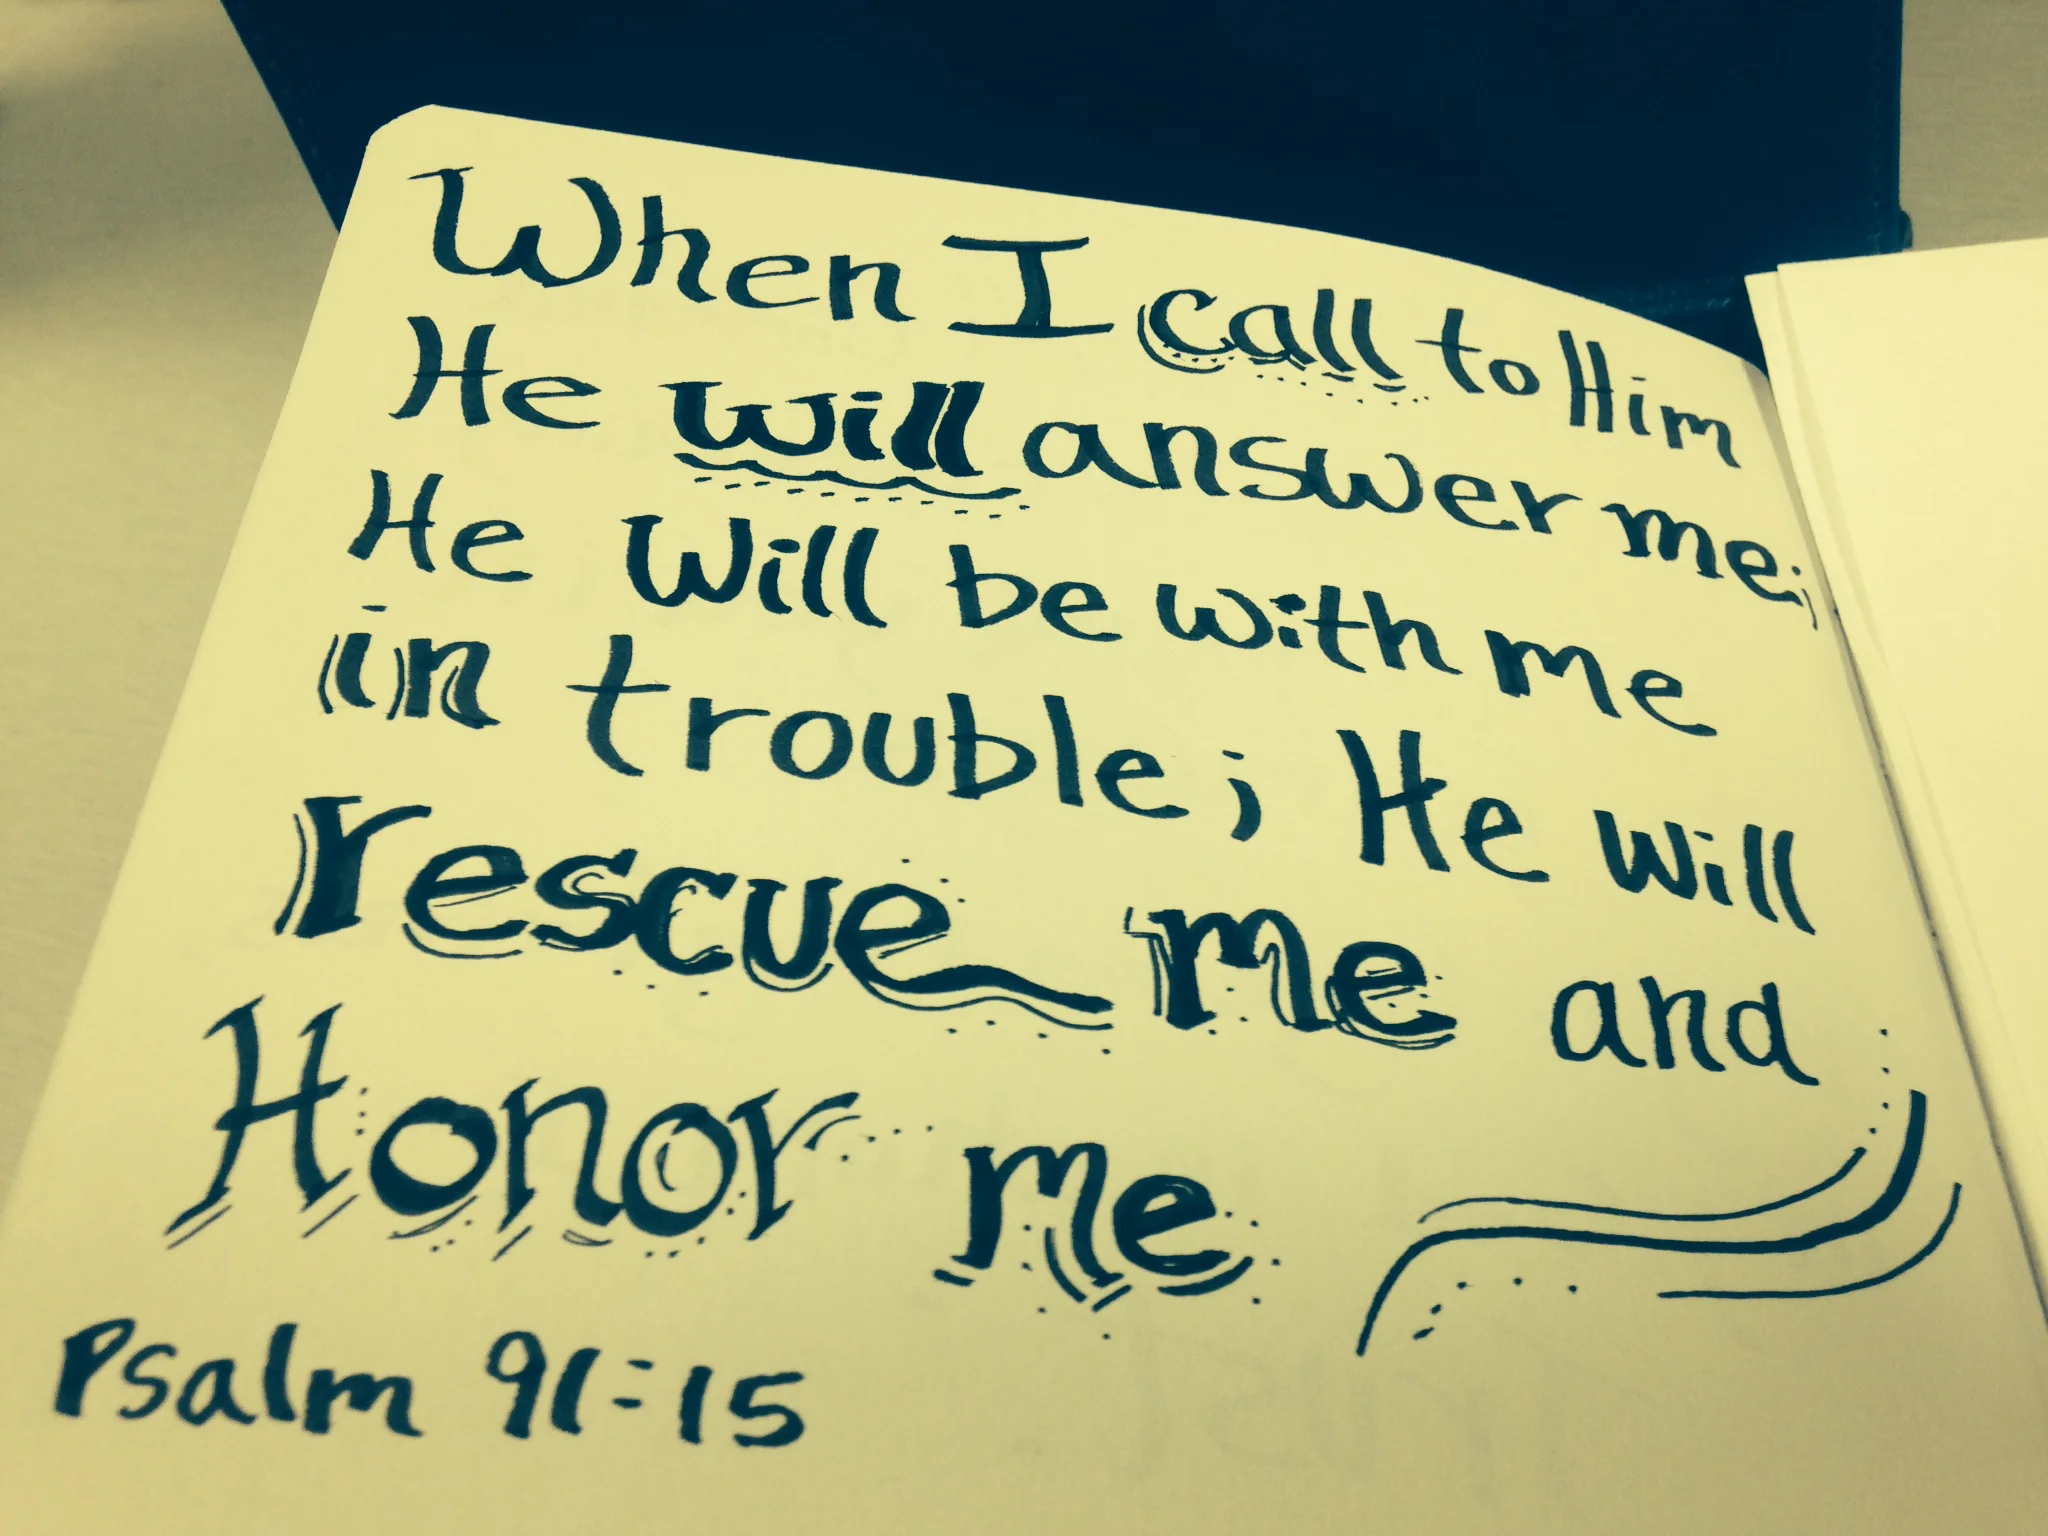 When I call to Him
He will answer me;
He will be with me
in trouble; He will
rescue me and
Honor me
Psalm 91:15